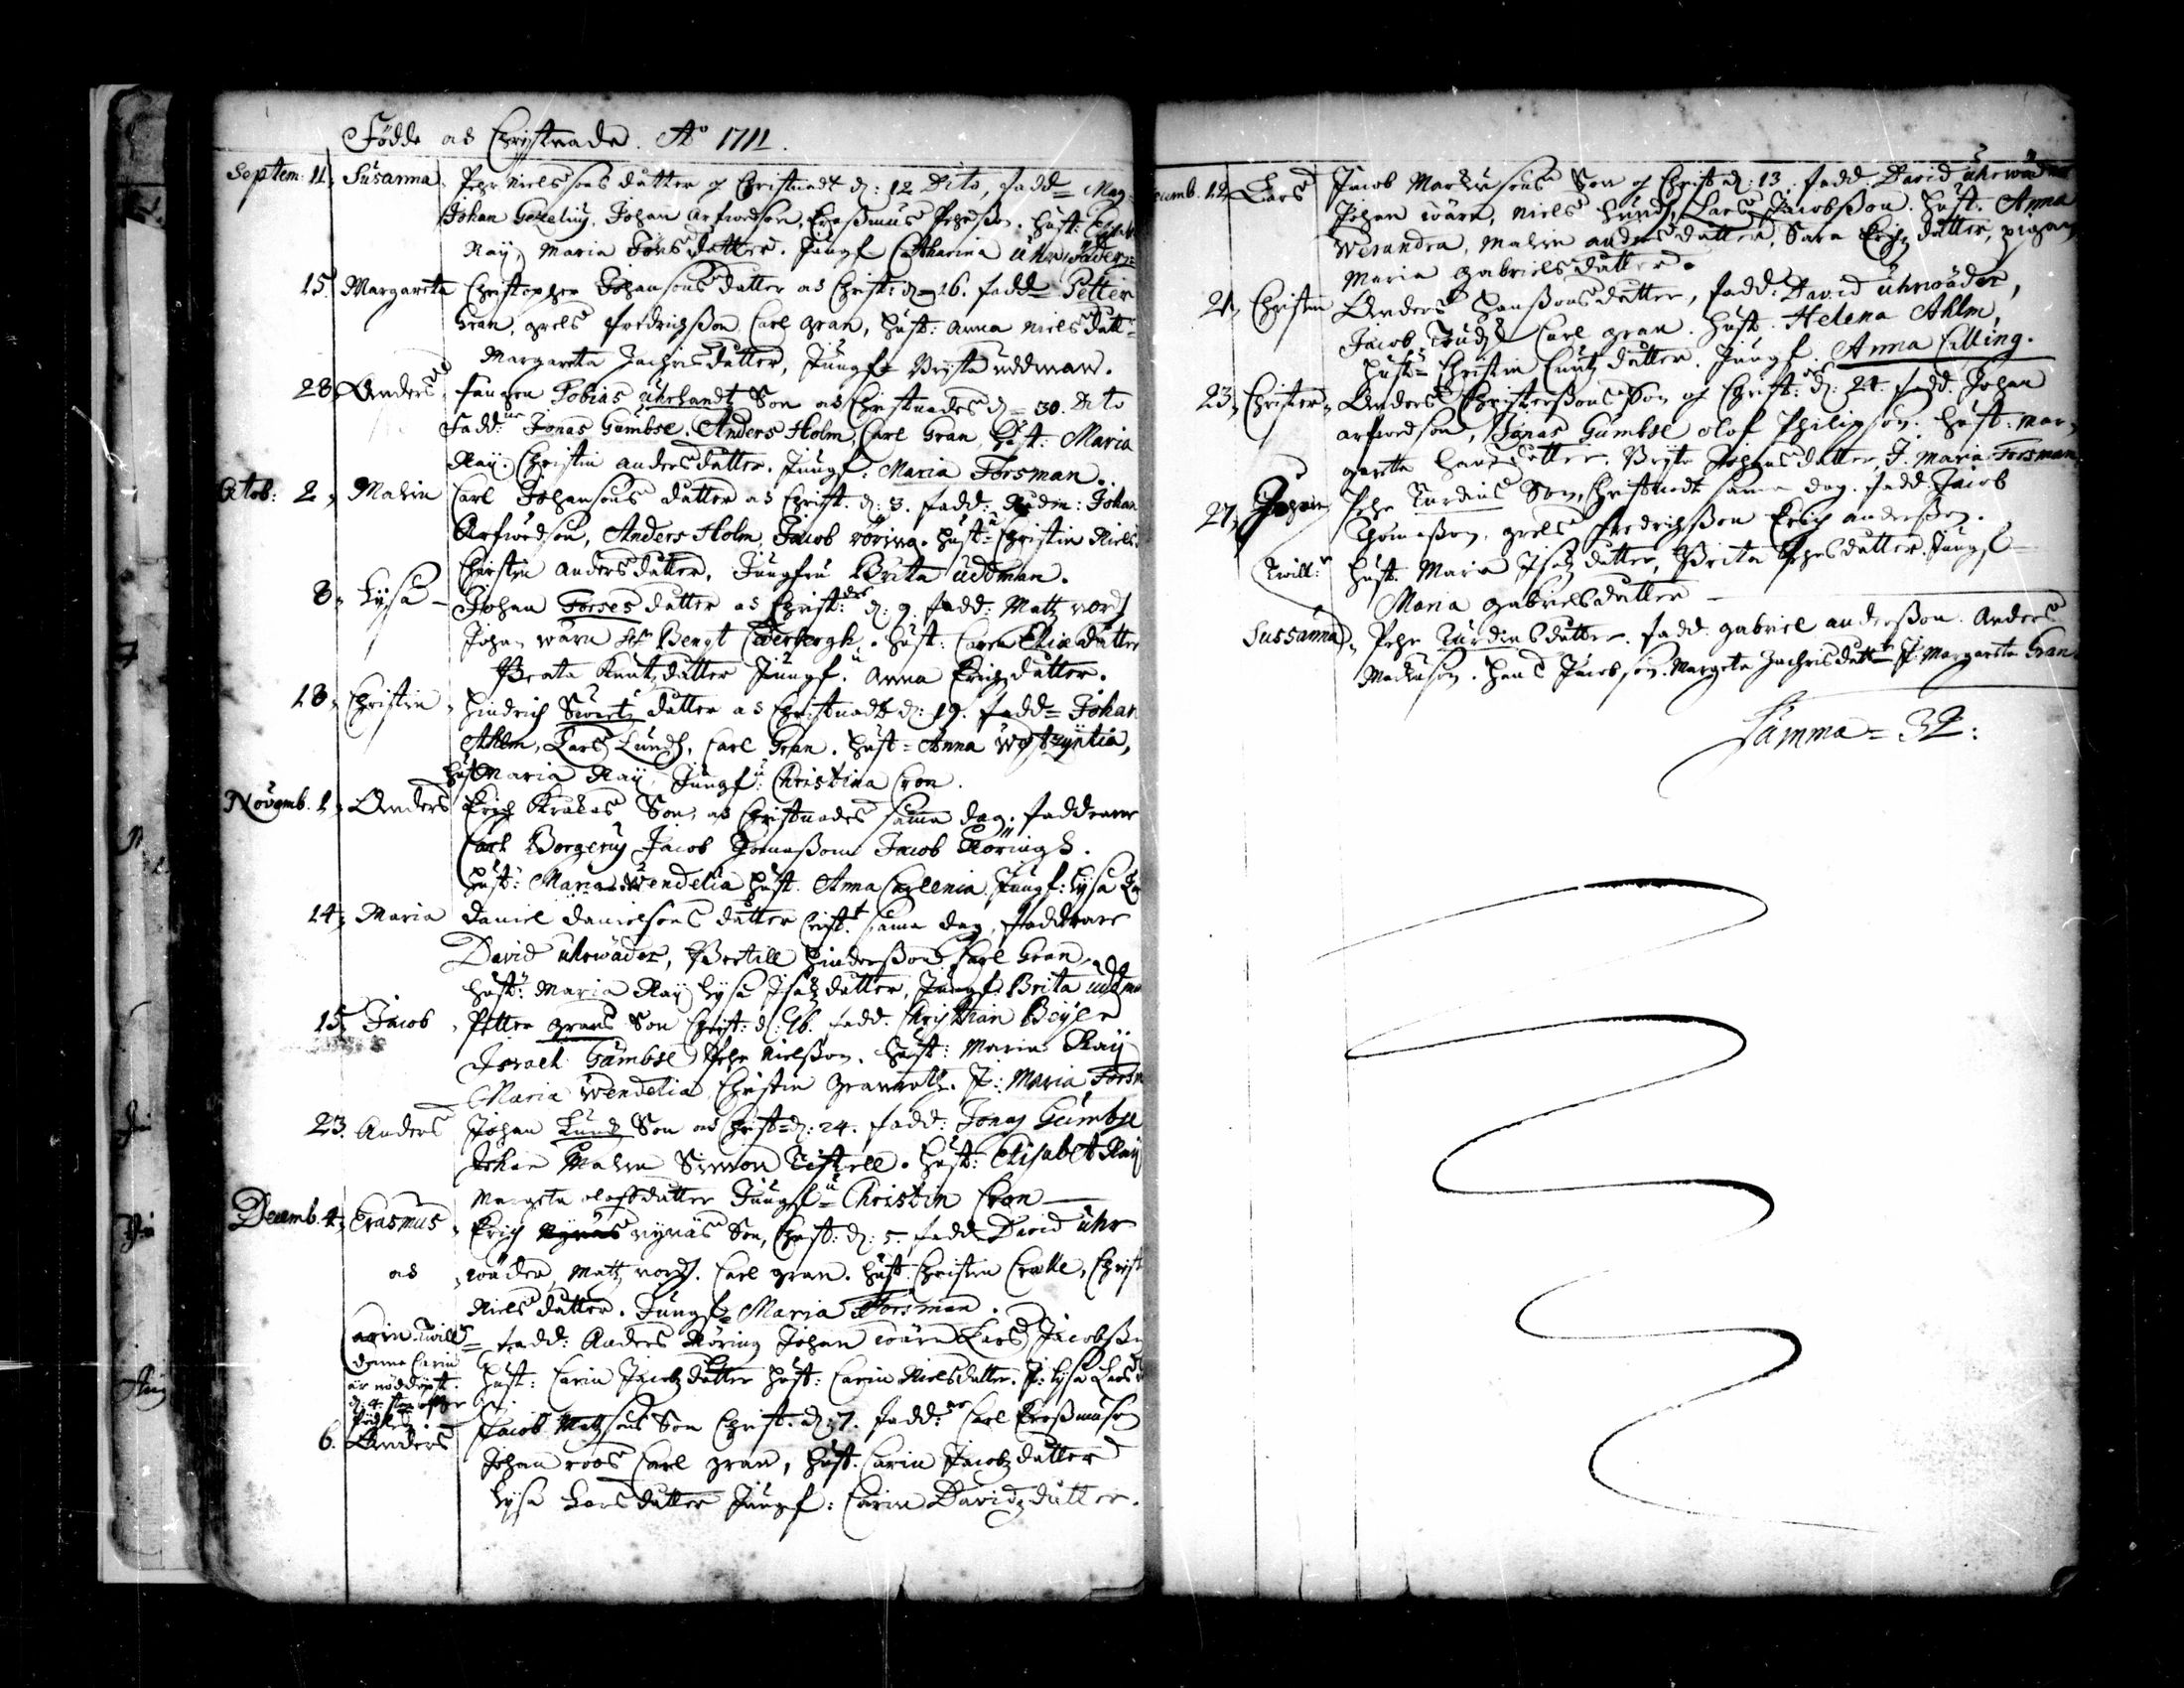 Födde as Christnade. Ao 1711.
Septem: 11, Susanna. Pehr Nielssons dåtter og Christnadt d: 12 Dito, fadd= Mag
Johan Gezelius, Johan Arfwedson, Erasmus Pehrsson. hust:
Raij, Maria Jöns dåtter. Jungf Catharina Uhrwäder=
15. Margareta Christopher Johansons datter as Christ: d= 16. fadd= Petter
Gran, grels fredrichsson Carl gran, hust: Anna Niels dått=
Margareta Zachris dåtter, Jungf= Brijta uddman.
28 Anders fången Tobias Uhrhandtz Son as Christnades d= 30. Dito
Fadd: Jonas Gumbse. Anders Holm, Carl Gran hust: Maria
Raij. Christin anders dåtter. Jungf: Maria Forsman.
Octob: 2, Malin Carl Johansons datter as Christ. d: 3. fadd: Johan
Arfwedson, Anders Holm, Jacob röring. hust= Christin Niels
Christin anders datter, Jungfru Brita Udman.
8, Lijsa Johan Forses datter as Christ: d: 9. fadd: Mattz nord
Johan wärn Bengt Cederbergh. hust: Carin Elia dåtter
Beata Knutz dåtter Jungf: Anna Erichz dåtter.
18, Christin, Hindrich Swartz dåtter as Christnadt d: 19. fadd= Johan
Ahlm, Lars Lund, Carl Gran. hust= Anna
hust Maria Raij, Jungf: Christina Cron.
Novemb. 1, Anders Erich Krakas Son, as Christnades sama dag. faddrarne
Carl Borgerus Jacob Thomasson Jacob Röringh.
hust: Maria Wendelia hust. Anna Carlenia Jungf: Lijsa
14, Maria Daniel Danielsons dåtter Crist. sama dag, faddrare
David Uhrwäder, Bertill Hindersson Carl Gran,
hust: Maria Raij Lijsa Isatz dåtter, Jungf. Brita udman
15, Jacob, Petter grans Son Christ: d: 16. fadd. Christian Beijer
Israel Gumbse, Pehr Nielsson. hust: Maria Raij
Maria Wendelia, Christin J: Maria Forsm
23. Anders Johan Lunds Son as Christ= d: 24. fadd: Jonas Gumbse
Johan Malm Simon Tistell. hust: Elisabet Raij
Margeta olofsdatter Jungf= Christin Cron
Decemb. 4, Erasmus, Erich nynäs Son, Christ: d: 5. fadd David Uhr
as wäder, Matz nord. Carl gran. hust. Christin Cralle, Christ
Niels datter. Jungf= Maria Forsman.
Carin Twill= fadd: Anders Röring Johan wärn Lars Jacobsson
denna Carin hust: Carin Jacobz dåtter hust: Carin Nielsdatter. J: Lijsa Lars
är nöddöpt.
d: 4.
6. Anders Jacob Matzsons Son Christ. d: 7. fadd: Carl Erossmuson
Johan roos Carl gran, hust. Carin Jacobz dåtter
Lijsa Lars dåtter Jungf: Carin Davidz dåtter.
cemb. 12, Lars Jacob Markusons Son og Christ d: 13. fadd: David Uhrwäder
Johan wärn, Niels Hund, Lars Jacobsson. hust. Anna
Werandra, Malin anders datter, Sara Erichz dåtter, pigan
Maria Gabriels dåtter.
21, Christin Anders Hanssons datter, fadd: David Uhrwäder,
Jacob Carl gran. hust. Helena Ahlm,
hust= Christin Cnutz dåtter. Jungf. Anna Calling.
23, Christer, Anders Christerssons Son og Christ: d: 24. fadd. Johan
arfwedson, Jonas Gumbse olof Philipson. hust: Mar,
gareta Hans dåtter. Brijta Johans datter, J. Maria Forsman
27, Pehr Turdins Son, Christnadt sama dag. fadd. Jacob
Thomasson, grels fredrichsson Erich andersson.
Twill: hust. Maria Isatz dåtter, Brita Pehrs dåtter. Jungf
Maria gabriels dåtter
Sussanna, Pehr Turdins dåtter. fadd. gabriel andersson. Anders
Markuson. Hans Jacobson. Margeta Zachrisdatt J: Margareta Gran.
Summa = 32: